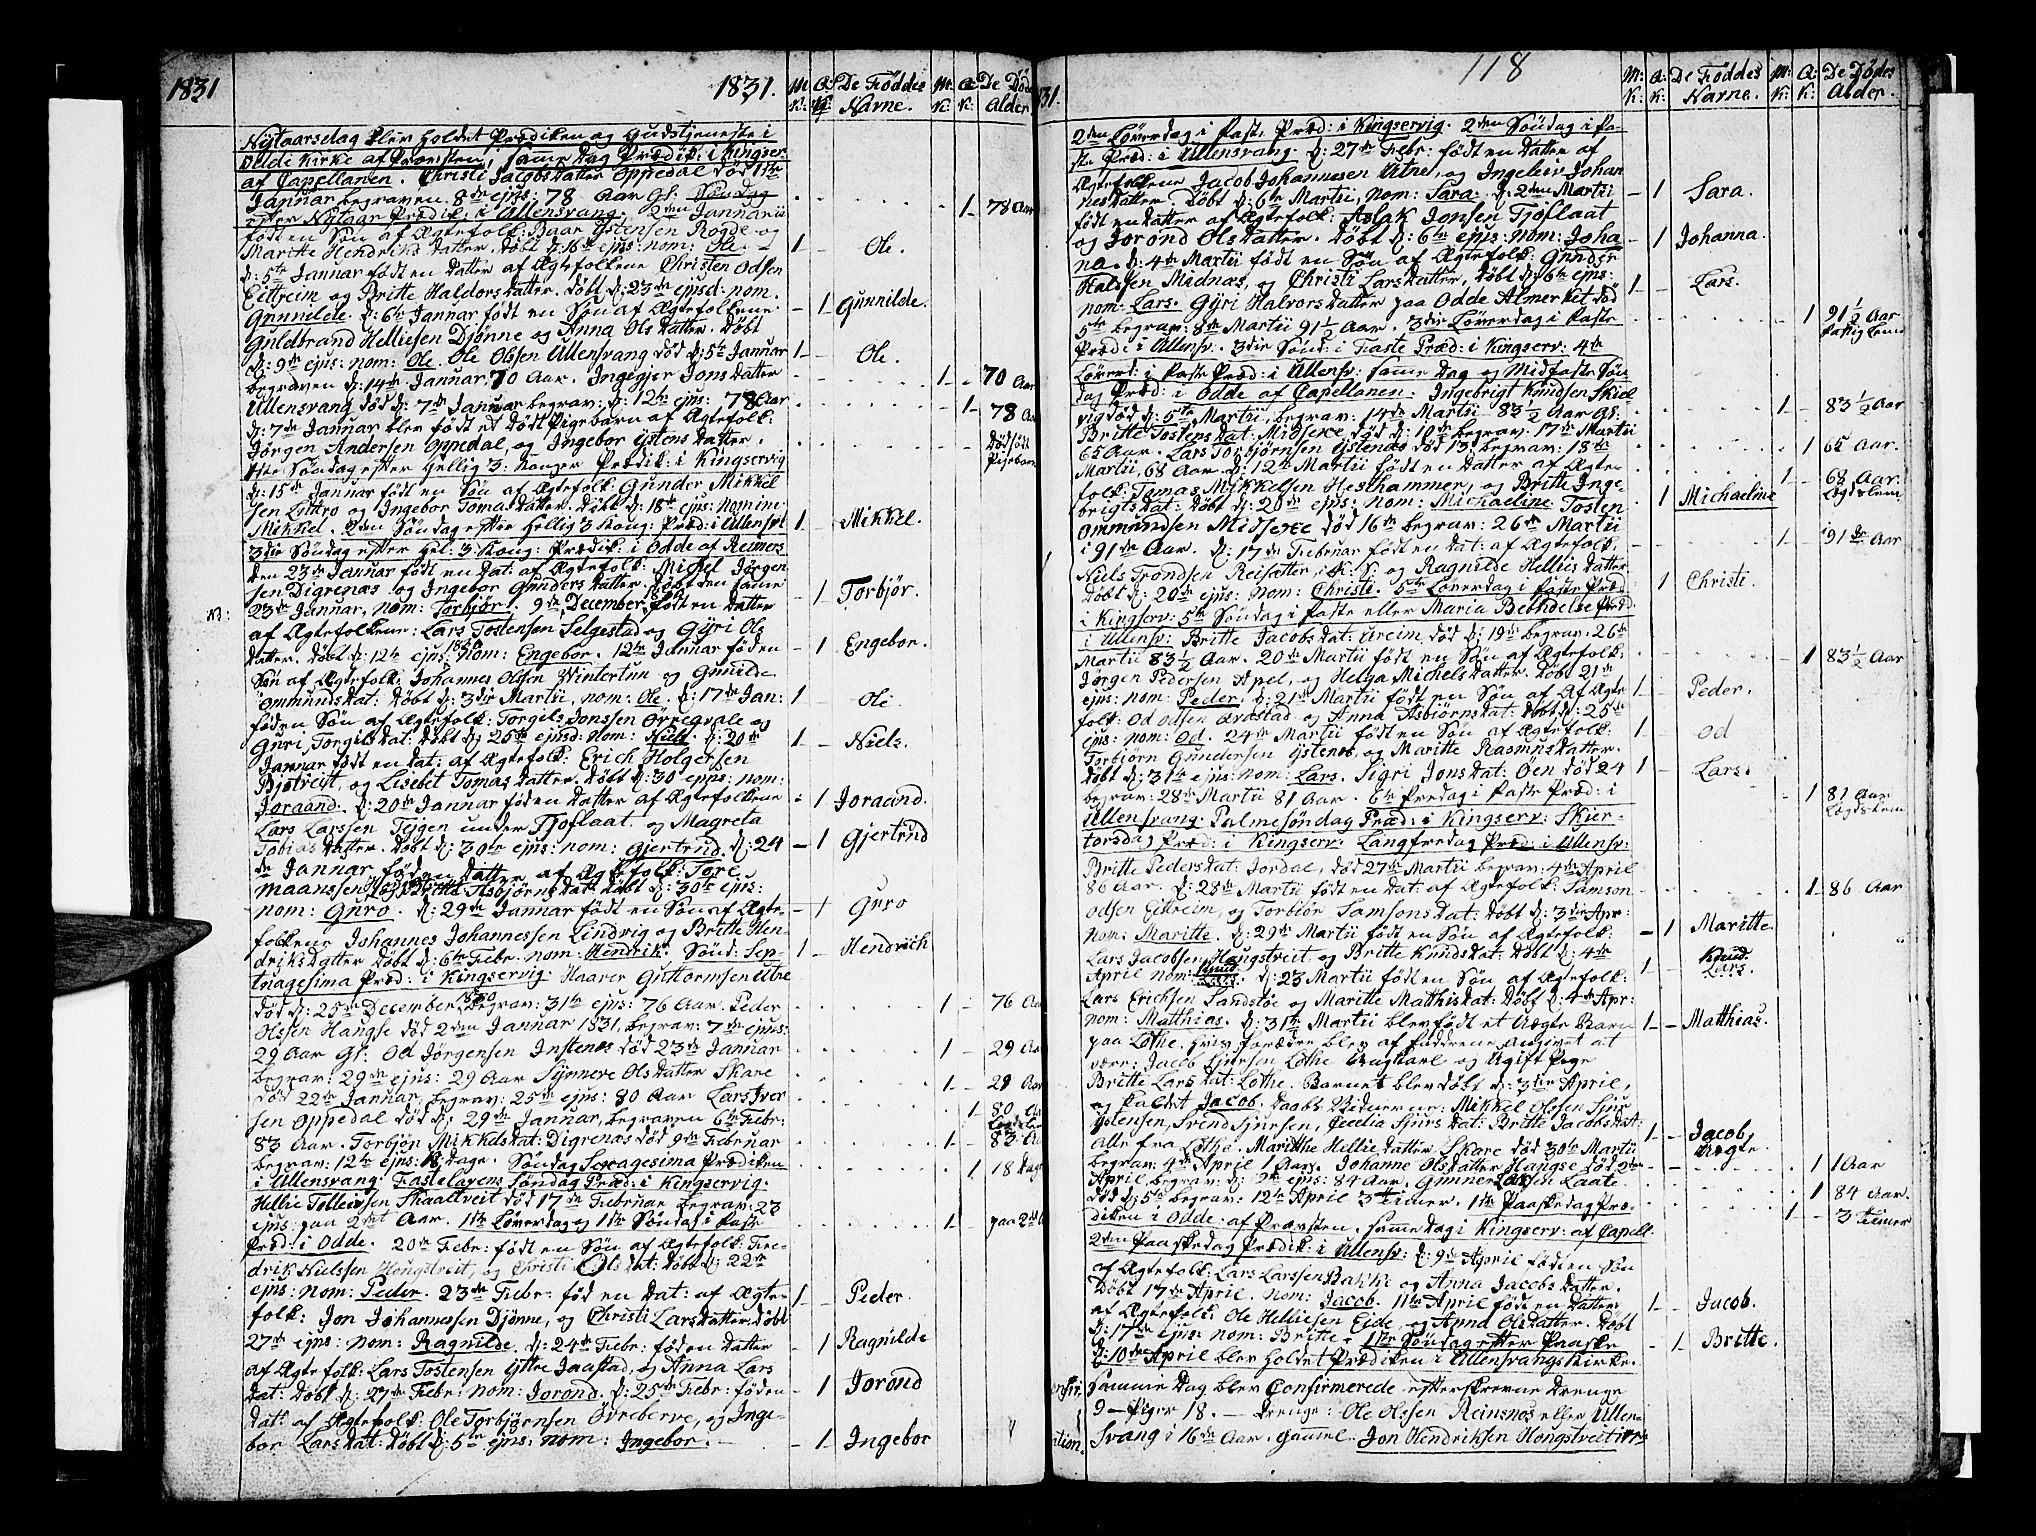 1831
1831.
M: K:
Q: K:
De Føddes Navne.
M: K:
Q: K:
De Dødes Alder
Nÿtaarsdag blev holdet Prædiken og Gudstjeneste i
Odde Kirke af Provsten, samme Dag Prædik: i Kingser-
af Capellanen. Christi Jacobsdatter Oppedal død 1ste
Januar begraven 8de ejus: 78 Aar Gl: Søndag
efter Nytaar Prædik: i Ullensvang. 2den Januarii
født en Søn af Ægtefolk: Baar Ystensen Rogde og
Maritte Hendriks datter. Døbt d: 16de ejus: nom: Ole.
d: 5te Januar født en Datter af Ægtefolkene Christen Odsen
Eittreim og Britte Haldorsdatter. Døbt d: 23de ejusd: nom.
Gunnilde. d: 6te Januar født en Søn af Ægtefolkene
Guldbrand Helliesen Djønne og Anna Olsdatter. Døbt
d: 9de ejus: nom: Ole. Ole Olsen Ullensvang død d: 5te Januar
begraven d: 14de Januar, 70 Aar. Ingegjer Jonsdatter
Ullensvang død d: 7de Januar begrav: d: 12te ejus: 78 Aar
d: 7de Januar blev født et dødt Pigebarn af Ægtefolk:
Jørgen Andersen Oppedal, og Ingebor Ystens datter.
1ste Søndag efter Hellig 3: Konger Prædik: i Kingservig
d: 15de Januar født en Søn af Ægtefolk: Gunder Mikkel
sen Luttro og Ingebor Tomasdatter. Døbt d: 18de ejus: Nomine
Mikkel. 2den Søndag efter Hellig 3 Kong: Præd: i Ullensv:
3die Søndag efter Hel: 3 Kong: Prædik: i Odde af Reimers
Den 23de Januar født en Dat: af Ægtefolk: Michel Jørgen
sen Digrenæs og Ingebor Gunders datter. Døbt den samme
23de Januar, nom: Torbjør. 9de December, født en Datter
af Ægtefolkene: Lars Tostensen Selgestad og Gÿri Ols
datter. Døbt d: 12te ejus: 1830 Nom: Engebor. 12te Januar føden
Søn af Ægtefolk: Johannes Olsen Wintertun og Gunilde
Ommundsdat: Døbt d: 3die Martii, nom: Ole. d: 17de Jan:
føden Søn af Ægtefolk: Torgils Jonssen Ørregvale og
Guri Torgilsdat: Døbt d: 25de ejusd: nom: Niels. d: 20de
Januar født en Dat: af Ægtefolk: Erich Holgersen
Bjotveitt, og Lisebet Tomasdatter. Døbt d: 30 ejus: nom:
Joraand. d: 20de Januar føden Datter af Ægtefolkene
Lars Larssen Teigen under Tjoflaat. og Magreta
Tobias datter. Døbt d: 30te ejus: nom: Gjertrud. d: 24
de Januar føden Datter af Ægtefolk: Tore
Maanssen og Asbjørnsdat: Døbt d: 30te ejus:
nom: Guro. d: 29de Januar født en Søn af Ægte-
folkene Johannes Johannessen Lindvig og Britte Hen-
driksdatter Døbt d: 6te Febr. nom: Hendrik. Sønd: Sep-
tuagesima Præd: i Kingservig: Haarer Guttormsen Utne
død d: 25de December 1830 begrav: 31te ejus: 76 Aar. Peder
Olssen Hangse død 2den Januar 1831. begrav: 7de ejus:
29 Aar Gl: Od Jørgensen Instenæs død 23de Januar
begrav: 29de ejus: 29 Aar Synneve Olsdatter Skare
død 22de Januar, begrav: 25de ejus: 80 Aar Lars Iver
sen Oppedal død d: 29de Januar, begraven 6te Febr:
83 Aar. Torbjør Mikkelsdat: Digrenæs død 9de Februar
begrav: 12te ejus: 18 dage. Søndag Sexagesima Prædiken
i Ullensvang. Fastelavens Søndag Præd: i Kingservig:
Hellie Tolleivsen Skaaltveit død 17de Februar begrav: 23
ejus: paa 2det Aar. 1ste Løverdag og 1ste Søndag i Faste
Præd: i Odde. 20de Febr: født en Søn af Ægtefolk: Fre-
drik Nielssen Hougstveit, og Christi Olsdat: Døbt d: 22de
ejus: nom: Peder. 23de Febr: fød en Dat: af Ægte-
folk: Jon Johannessen Djønne, og Christi Larsdatter, Døbt
27de ejus: nom: Ragnilde. d: 24de Febr: føden Datter
af Ægtefolk: Lars Tostensen Yttre Jaastad, og Anna Lars
dat: Døbt d: 27de Febr: Nom: Jorond. d: 25de Febr: føden
Dat: af Ægtefolk: Ole Torbjørnsen Øvreberve, og Inge-
bor Larsdat: Døbt d: 5te ejus: nom: Ingebor.
NB:
78 Aar
1 Ole.
1 Gunnilde.
1 Ole.
1 70 Aar
1 78 Aar
Dødfødt Pigebarn
1 Mikkel.
1 Torbjør.
1 Engebor.
1 Ole
1 Niels.
1 Joraand.
1 Gjertrud
1 Guro
1 Hendrich
1 76 Aar
1 29 Aar
1 29 Aar
1 80 Aar
1 83 Aar
1 18 Dage
1 paa 2det
1 Peder.
1 Ragnilde
1 Jorond
1 Ingebor
118
M: K:
Q: K:
De Føddes Navne.
M: K:
Q: K:
De Dødes Alder.
2den Løverdag i Faste, Præd: i Kingservig. 2den Søndag i Fa-
ste Præd: i Ullensvang. d: 27de Febr: født en Datter af
Ægtefolkene Jacob Johannessen Utne, og Ingeleiv Johan
nesdatter. Døbt d: 6te Martii, nom: Sara. d: 2den Martii
født en Datter af Ægtefolk: Aslak Jonsen Tjoflaat
og Jorond Olsdatter. Døbt d: 6te ejus: nom: Joha
na. d: 4de Martii født en Søn af Ægtefolk: Gunder
Haldsen Midnæs, og Christi Larsdatter, Døbt d: 6te ejus:
nom: Lars. Gÿri Halvorsdatter paa Odde Almerket død
5te begrav: 8de Martii 91 ½ Aar. 3die Løverdag i Faste
Præd: i Ullensv: 3die Sønd: i Faste Præd: i Kingserv: 4de
Løverd: i Faste Præd: i Ullensv: samme Dag og Midfaste Søn
dag Præd: i Odde af Capellanen. Ingebrigt Knudsen Skiel
vig død d: 5te Martii, begrav: 14de Martii 83 ½ Aar Gl:
Britte Tostensdat: Midsexe død d: 10de begrav: 17de Martii
65 Aar. Lars Torbjørnsen Ystenæs død 13, begrav: 18de
Martii, 68 Aar. d: 12te Martii født en Datter af Ægte-
folk: Tomas Mikkelsen Hesthammer, og Britte Inge-
brigtsdat: Døbt d: 20de ejus: nom: Michaeline. Tosten
Ommundsen Midsexe død 16de begrav: 26de Martii
i 91de Aar. d: 17de Februar født en Dat: af Ægtefolk:
Niels Trondsen Reisæter, i K: S: og Ragnilde Hellies datter
Døbt d: 20de ejus: Nom: Christi. 5te Løverdag i Faste Præd:
i Kingserv: 5te Søndag i Faste eller Maria Bebudelse Præd:
i Ullensv: Britte Jacobsdat: Areim død d: 19de begrav: 26de
Martii 83 ½ Aar. 20de Martii født en Søn af Ægtefolk:
Jørgen Pedersen Apel, og Helga Michelsdatter. Døbt 21de
ejus: nom: Peder. d: 21de Martii født en Søn af Ægte
folk: Od Odsen Ardstad og Anna Asbjørnsdat: Døbt d: 25de
ejus: nom: Od. 24de Martii født en Søn af Ægtefolk:
Torbjørn Gundersen Ystenæs, og Maritte Rasmusdatter.
Døbt d: 31te ejus: nom: Lars. Sigri Jonsdat: Øen død 24
begrav: 28de Martii 81 Aar. 6te Fredag i Faste Præd: i
Ullensvang. Palmesøndag Præd: i Kingserv: Skier-
torsdag Præd: i Kingserv: Langfredag Præd: i Ullensv:
Britte Pedersdat: Jordal, død 27de Martii begrav: 4de April
86 Aar. d: 28de Martii født en Dat: af Ægtefolk: Samson
Odsen Eittreim, og Torbjør Samsonsdat: Døbt d: 3die Apr:
nom: Maritte. d: 29de Martii født en Søn af Ægtefolk:
Lars Jacobsen Hougstveit og Britte Knudsdat: Døbt d: 4de
April nom: Knud. d: 23 Martii føden Søn af Ægtefolk:
Lars Erichsen Sandstøe og Maritte Matthisdat: Døbt d: 4de Apr:
nom: Matthias. d: 31te Martii blev født et Uægte Barn
paa Lothe, hvis Foræder blev af Fadderne angivet at
være: Jacob Sjursen Lothe Ungkarl og Ugift Pige
Britte Larsdat: Lothe. Barnet blev døbt d: 3die April,
og kaldet Jacob. Daabs Vidner vr: Mikkel Olssen Sjur
Ystensen, Svend Sjursen, Cecelia Sjursdat: Britte Jacobsdat:
Alle fra Lothe. Marithe Helliedatter Skare død 30te Martii
begrav: 4de April 1 Aar. Johanne Olsdatter Hangse død 2den
April begrav: d: 9de ejus: 84 Aar. Gunner Larsen Laate
død d: 5te begrav: 12te April 3 Timer. 1ste Paaskedag Præ-
diken i Odde af Provsten. samme dag i Kingserv: af Capell.
2den Paaskedag Prædik: i Ullensv: d: 9de April føden Søn
af Ægtefolk: Lars Larssen Bakke og Anna Jacobs datter.
Døbt 17de April. nom: Jacob. 11te April født en Datter
af Ægtefolk: Ole Helliesen Eide, og Apnd Olsdatter. Døbt
d: 17de ejus: nom: Britte. 1ste Søndag efter Paaske
d: 10de April blev holdet Prædiken i Ullensvangs Kirke.
Samme Dag blev Confirmerede efterskrevne Drenge
9 - Piger 18. - Drenge: Ole Olssen Reinsnos eller Ullen-
svang i 16de Aar. gammel. Jon Hendriksen Hongstveit
1 Sara.
1 Johanna.
1 Lars.
1 91 ½ Aar Fattiglem
1 83 ½ Aar
1 65 Aar.
1 68 Aar. Lægdslem
1 Michaeline
1 91de Aar
1 Christi
1 83 ½ Aar
1 Peder.
1 Od
1 Lars.
1 81 Aar Lægdslem
1 86 Aar
1 Maritte.
1 Knud Lars.
1 Matthias.
1 Jacob, Uægte.
1 1 Aar
1 84 Aar.
1 3 Timer
1 Jacob.
1 Britte.